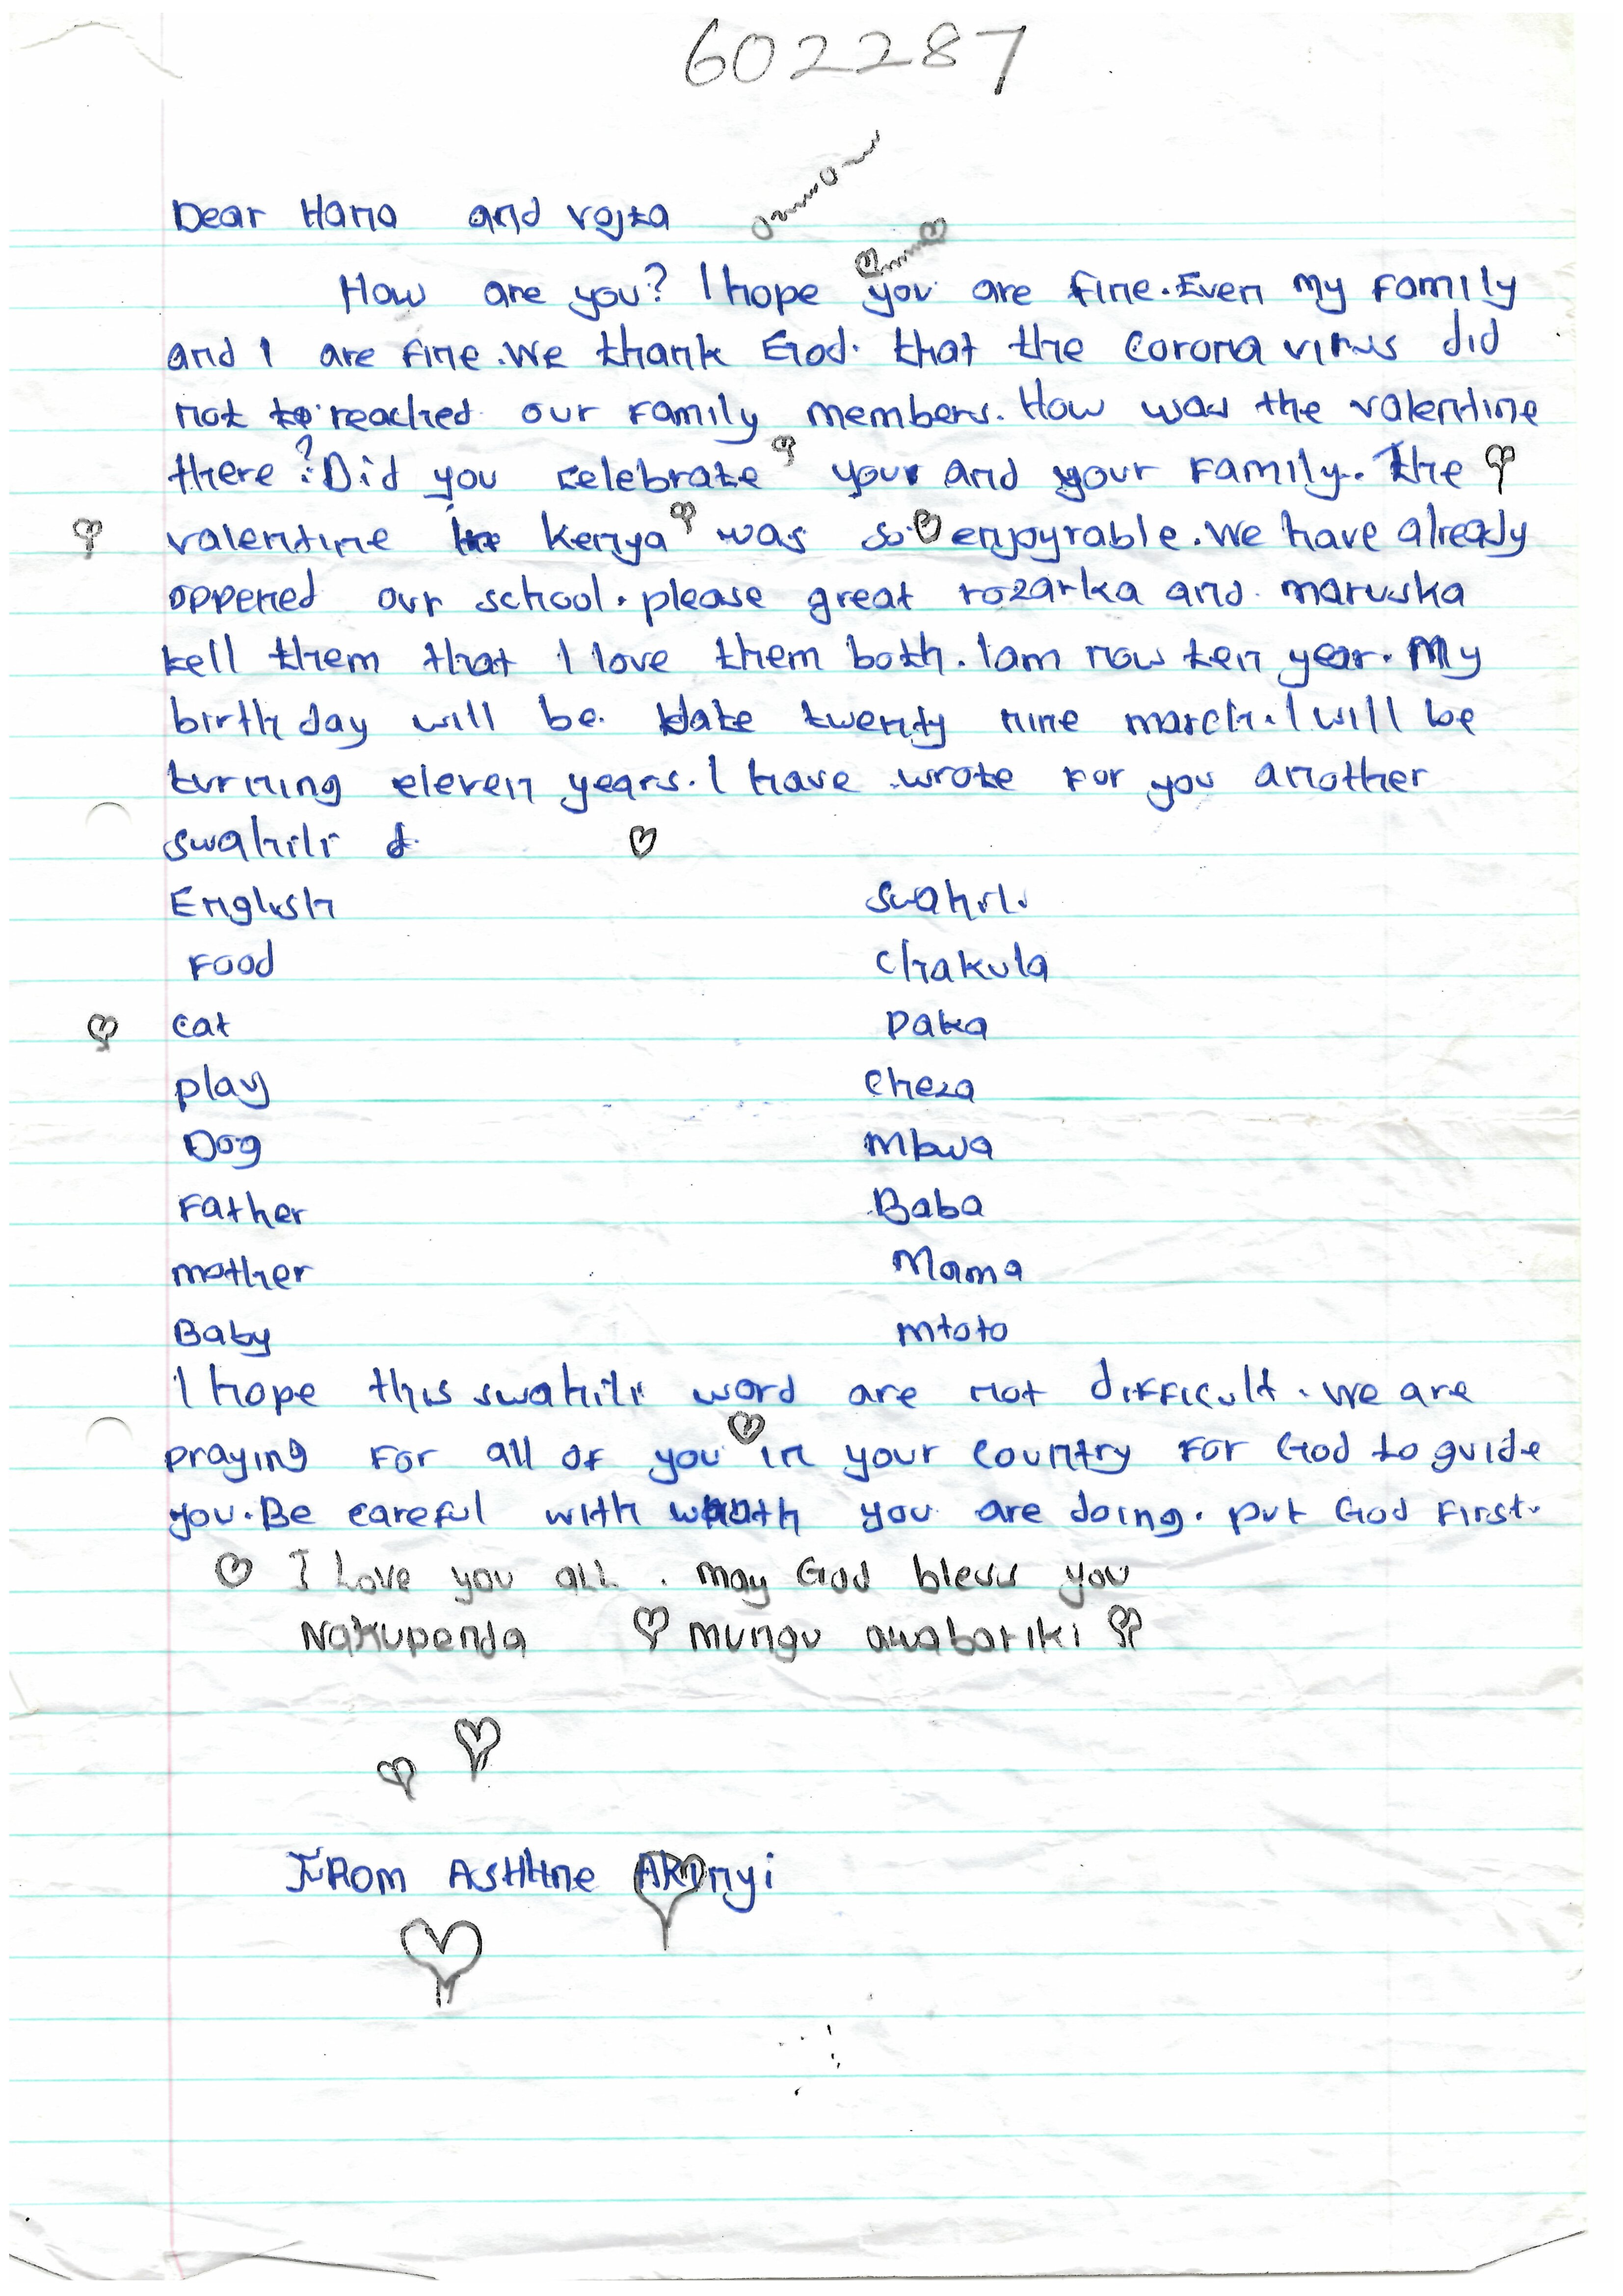 602287
Dear Hana and vojta
How are you? I hope you are fine. Even my family
and I are fine. We thank God. that the corona virus did
not reached our family members. How was the valentine
there? Did you celebrate your and your family. The
valentine in Kenya was so enjoyrable. We have already
oppened our school. please great rozarka and maruska
tell them that I love them both. Iam now ten year. My
birth day will be date twenty nine march. I will be
turning eleven years. I have wrote for you another
swahili
English swahili
Food chakula
cat paka
play cheza
Dog Mbwa
Father Baba
mother Mama
Baby mtoto
I hope this swahili word are not difficult. We are
praying for all of you in your country for God to guide
you. Be careful with you are doing. put God first.
I Love you all. may God bless you
Nakupenda mungu awabariki
FROM ASHLINE AKINyi